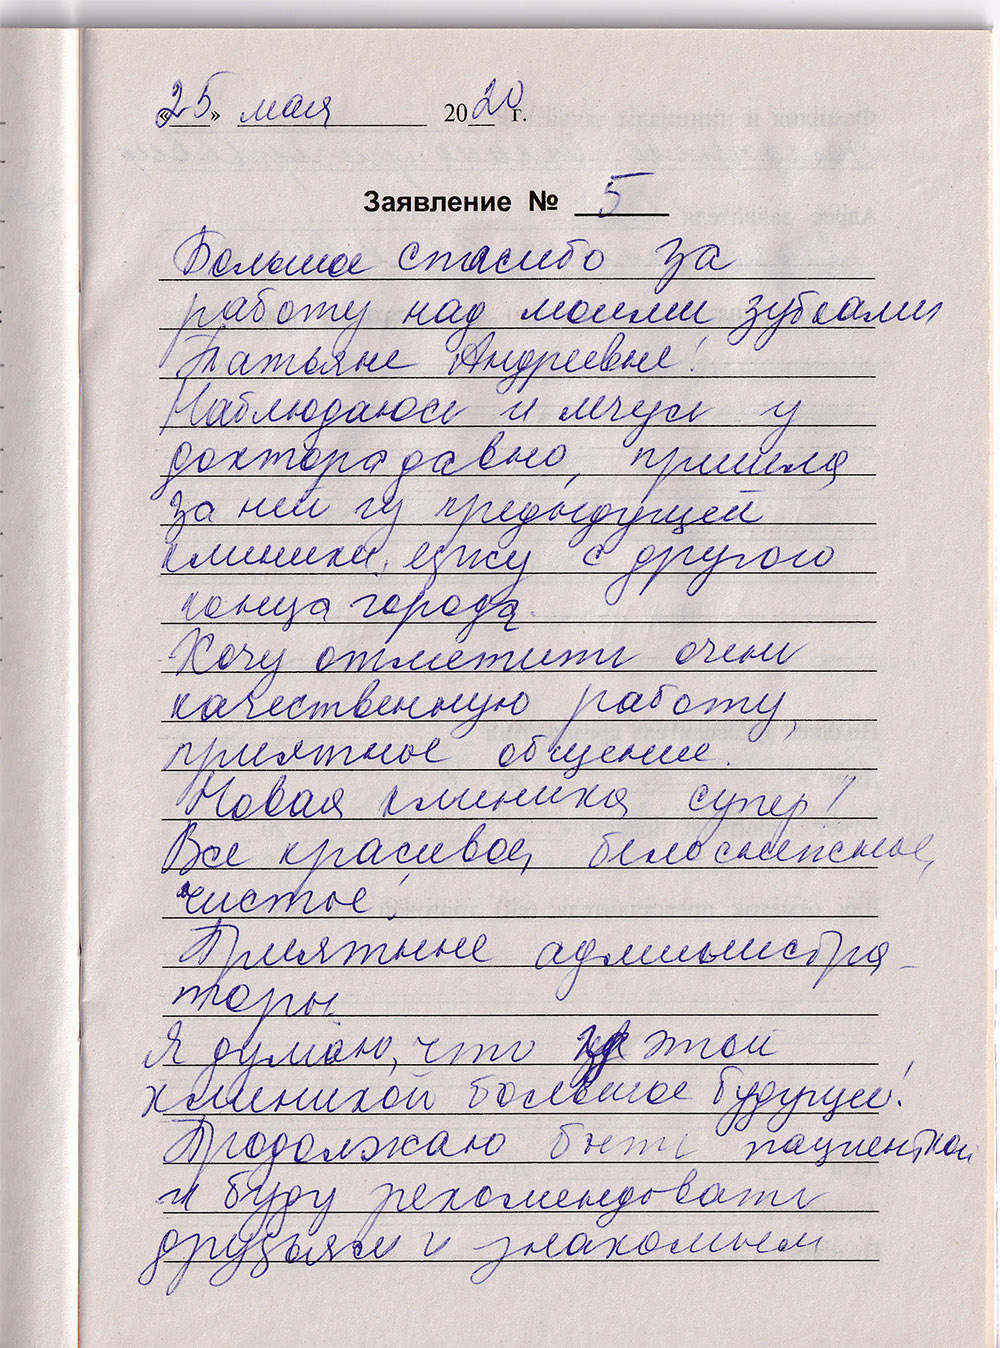 «25» мая 2020 г.
Заявление № 5
Большое спасибо за
работу над моими зубками
Татьяне Андреевне!
Наблюдаюсь и лечусь у
доктора давно, пришла
за ней из предыдущей
клиники, езжу с другого
конца города.
Хочу отметить очень
качественную работу,
приятное общение.
Новая клиника супер!
Все красивое, белоснежное,
чистое!
Приятные администра-
торы.
Я думаю, что за этой
клиникой большое будущее!
Продолжаю быть пациенткой
и буду рекомендовать
друзьям и знакомым